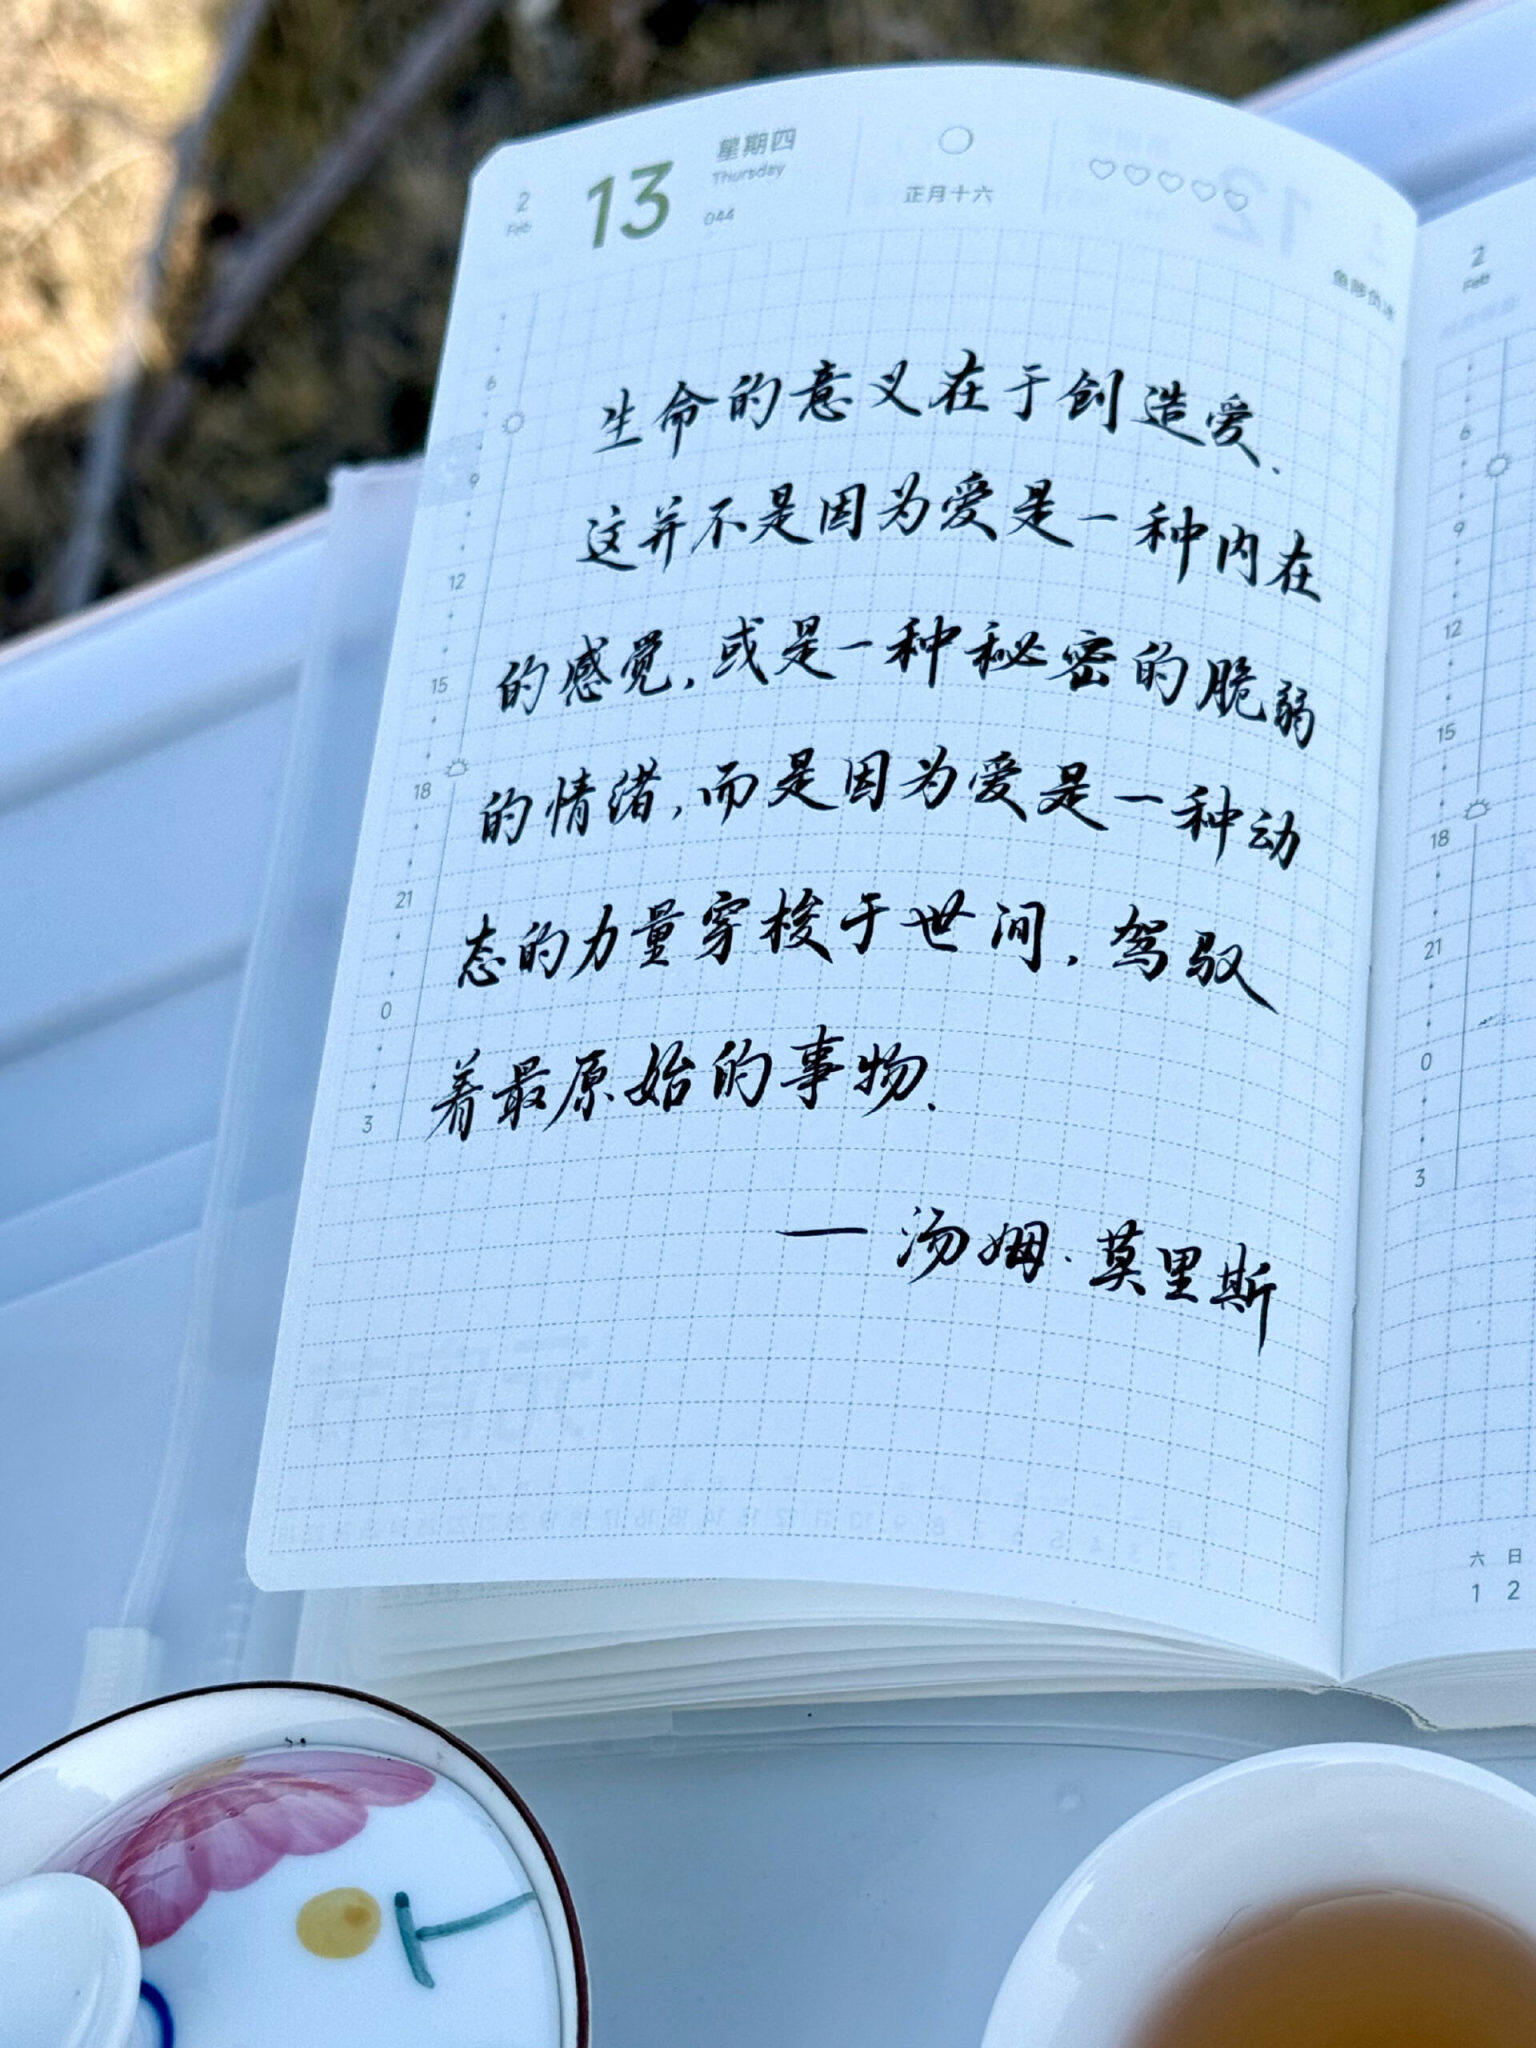 2
Feb
13
星期四
Thursday
044
正月十六
鱼陟负冰
生命的意义在于创造爱.
这并不是因为爱是一种内在
的感觉,或是一种秘密的脆弱
的情绪,而是因为爱是一种动
态的力量穿梭于世间,驾驭
着最原始的事物.
— 汤姆·莫里斯
6
9
12
15
18
21
0
3
2
Feb
6
9
12
15
18
21
0
3
六 日
1 2